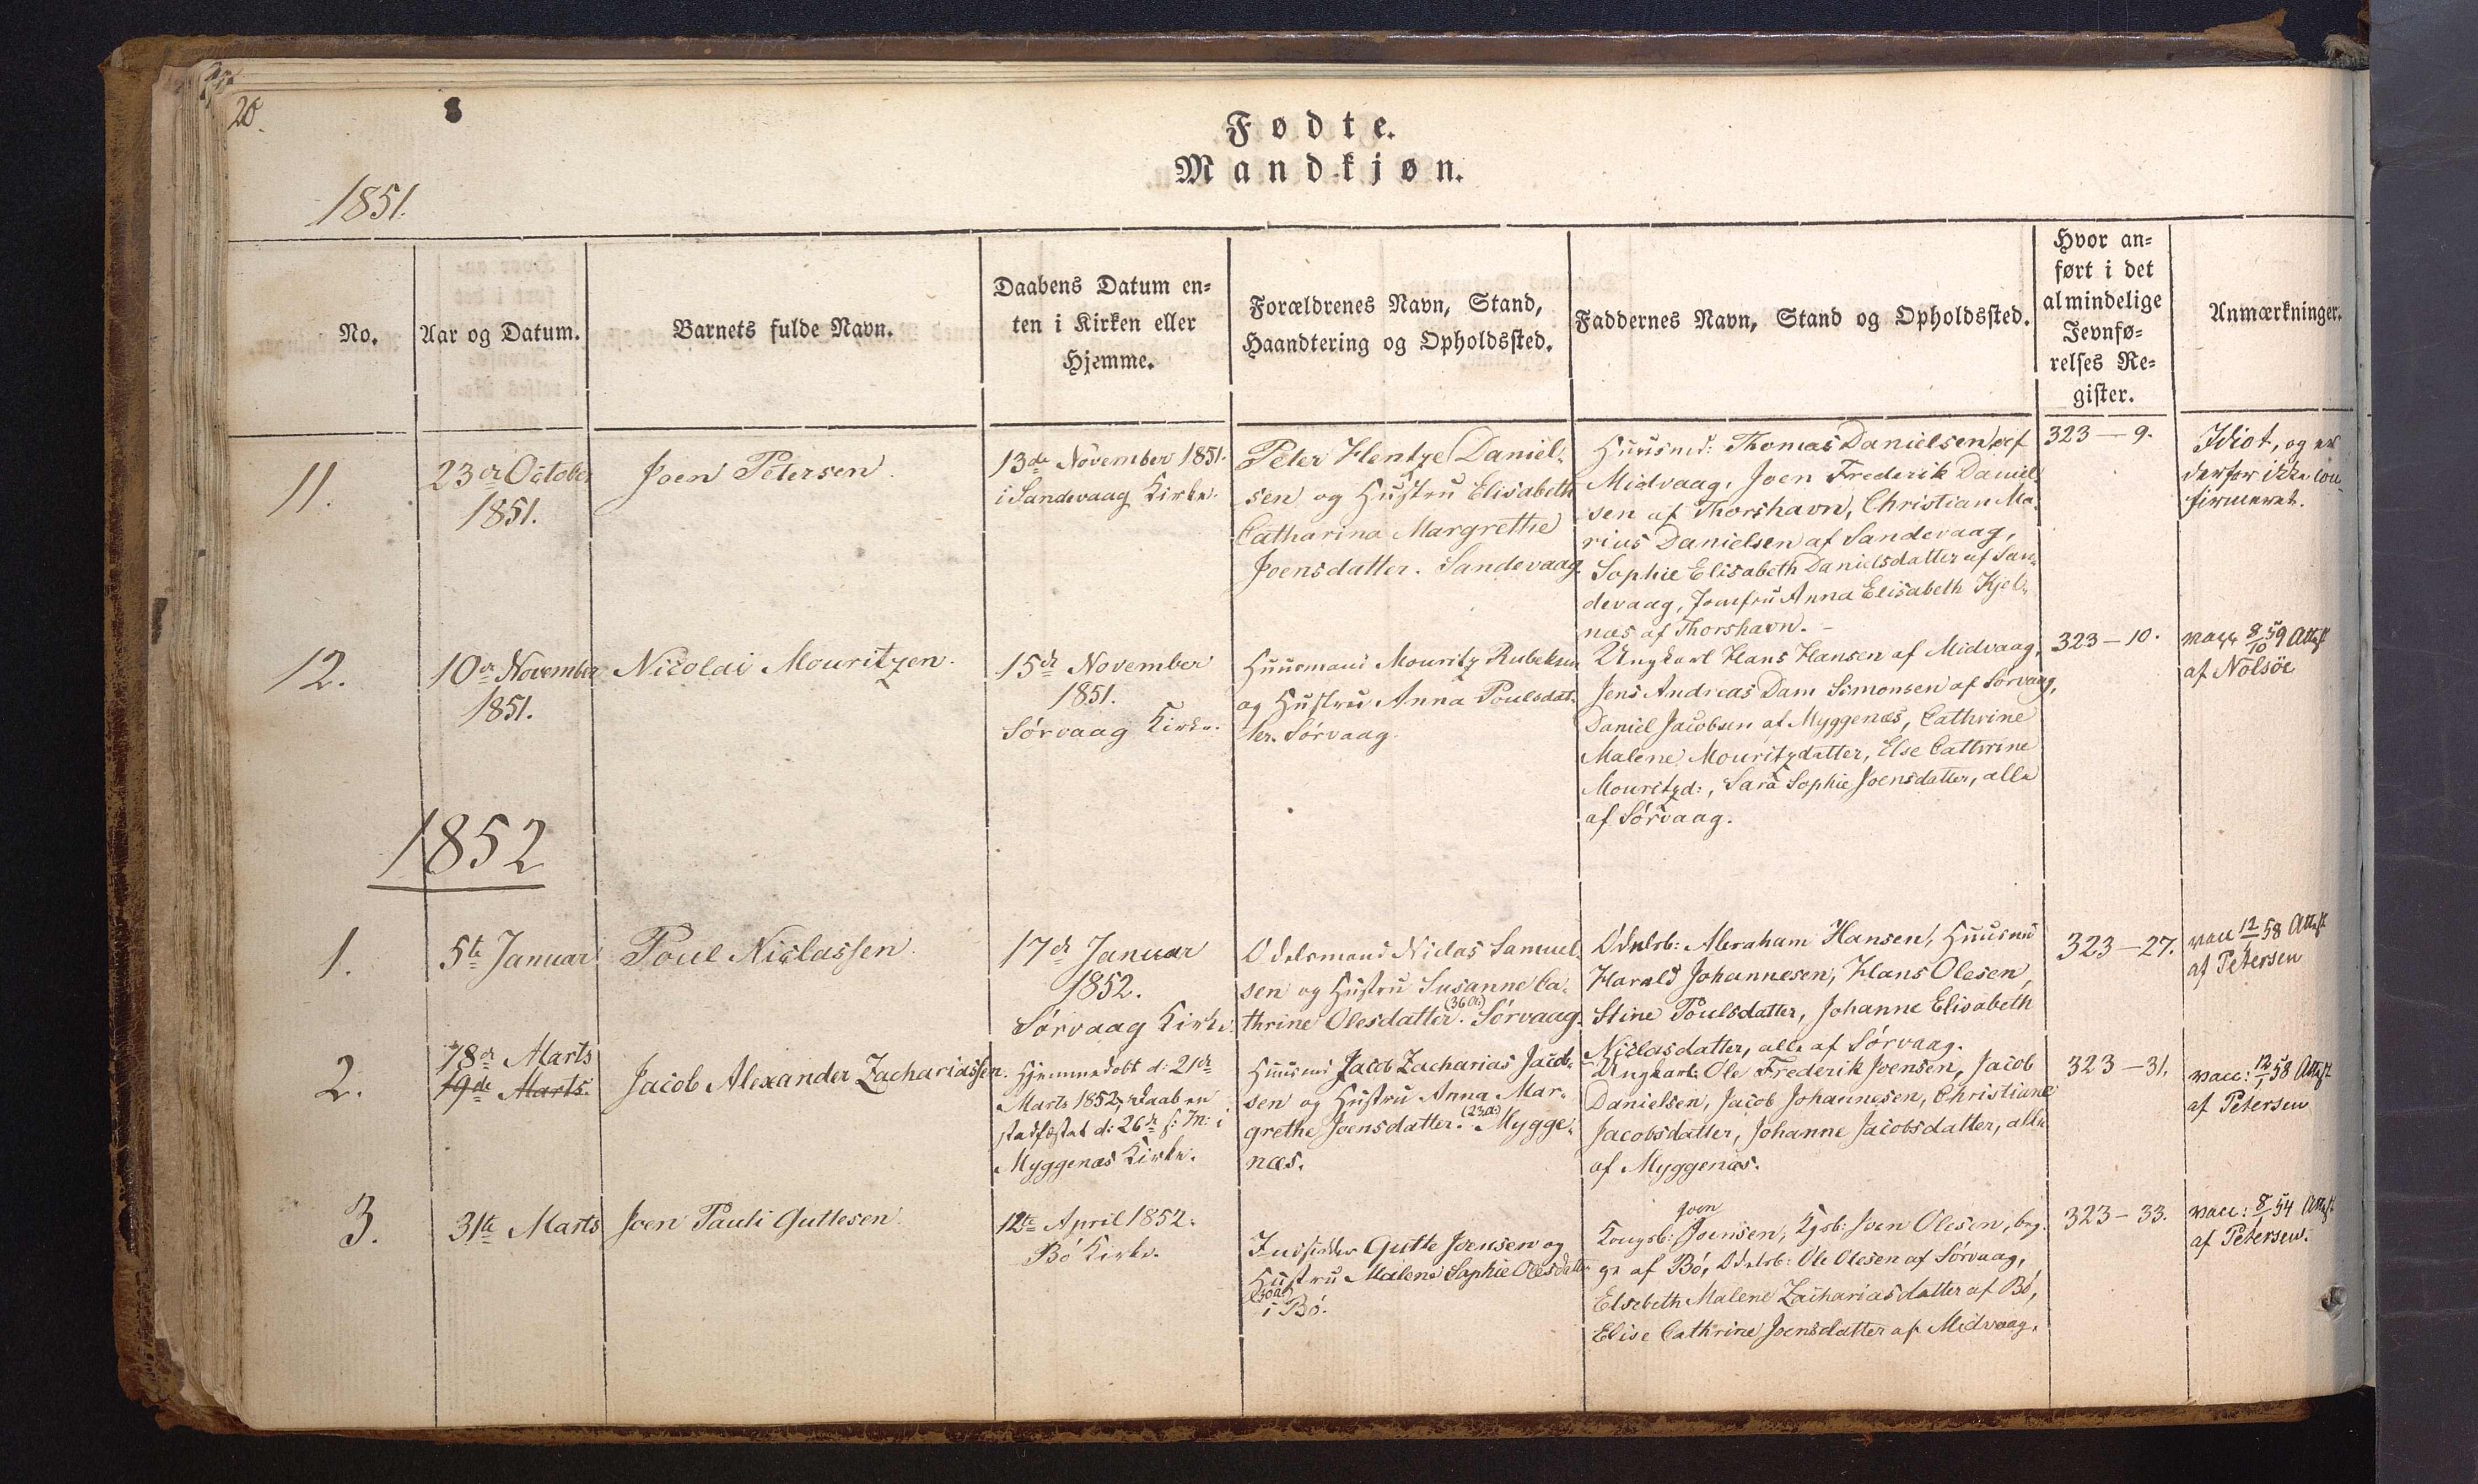 20.
Fødte.
Mandkjøn.
1851.
No.
Aar og Datum.
Barnets fulde Navn.
Daabens Datum en-
ten i Kirken eller
Hjemme.
Forældrenes Navn, Stand,
Haandtering og Opholdssted.
Faddernes Navn, Stand og Opholdssted.
Hvor an-
ført i det
almindelige
Jevnfø-
relses Re-
gister.
Anmærkninger.
11.
23de October
1851.
Joen Petersen.
13de November 1851.
i Sandevaag Kirke.
Peter Hentze Daniel-
sen og Hustru Elisabeth
Catharina Margrethe
Joensdatter. Sandevaag.
Huusmd: Thomas Danielsen af
Midvaag, Joen Frederik Daniel
sen af Thorshavn, Christian Ma-
rius Danielsen af Sandevaag,
Sophie Elisabeth Danielsdatter af San-
devaag, Jomfru Anna Elisabeth Kjel-
næs af Thorshavn.
323 — 9.
Idiot, og er
derfor ikke con-
firmeret.
12.
10de November
1851.
Nicolai Mouritzen.
15de November
1851.
Sørvaag Kirke.
Huusmand Mouritz Rubeksen
og Hustru Anna Poulsdat-
ter. Sørvaag.
Ungkarl Hans Hansen af Midvaag,
Jens Andreas Dam Simonsen af Sørvaag,
Daniel Jacobsen af Myggenæs, Cathrine
Malene Mouritzdatter, Else Cathrine
Mouritzd:, Sara Sophie Joensdatter, alle
af Sørvaag.
323 — 10.
vacc 8/10 59 Attest
af Nolsøe
1852
1.
5te Januar
Poul Niclassen.
17de Januar
1852.
Sørvaag Kirke.
Odelsmand Niclas Samuel-
sen og Hustru Susanne Ca-
thrine Olesdatter (36 A). Sørvaag.
Odelsb: Abraham Hansen, Huusmd
Harald Johannesen, Hans Olesen,
Stine Poulsdatter, Johanne Elisabeth
Niclasdatter, alle af Sørvaag.
323 — 27.
vacc 12/1 58 Attest
af Petersen
2.
18de Marts
19de Marts.
Jacob Alexander Zachariassen.
Hjemmedøbt d: 21de
Marts 1852, Daaben
stadfæstet d: 26de s: M: i
Myggenæs Kirke.
Huusmd Jacob Zacharias Jacob-
sen og Hustru Anna Mar-
grethe Joensdatter. (23 A) Mygge-
næs.
Ungkarl: Ole Frederik Joensen, Jacob
Danielsen, Jacob Johannesen, Christiane
Jacobsdatter, Johanne Jacobsdatter, alle
af Myggenæs.
323 — 31.
vacc: 12/1 58 Attest
af Petersen
3.
31te Marts
Joen Pauli Guttesen.
12te April 1852.
Bø Kirke.
Indsidder Gutte Joensen og
Hustru Malene Sophie Olesdatter
(30 A)
i Bø.
Joen
Kongsb: Joensen, Kgsb: Joen Olesen, beg-
ge af Bø, Odelsb: Ole Olesen af Sørvaag,
Elsebeth Malene Zachariasdatter af Bø,
Elise Cathrine Joensdatter af Midvaag.
323 — 33.
vacc: 8/ 54 Attest
af Petersen.